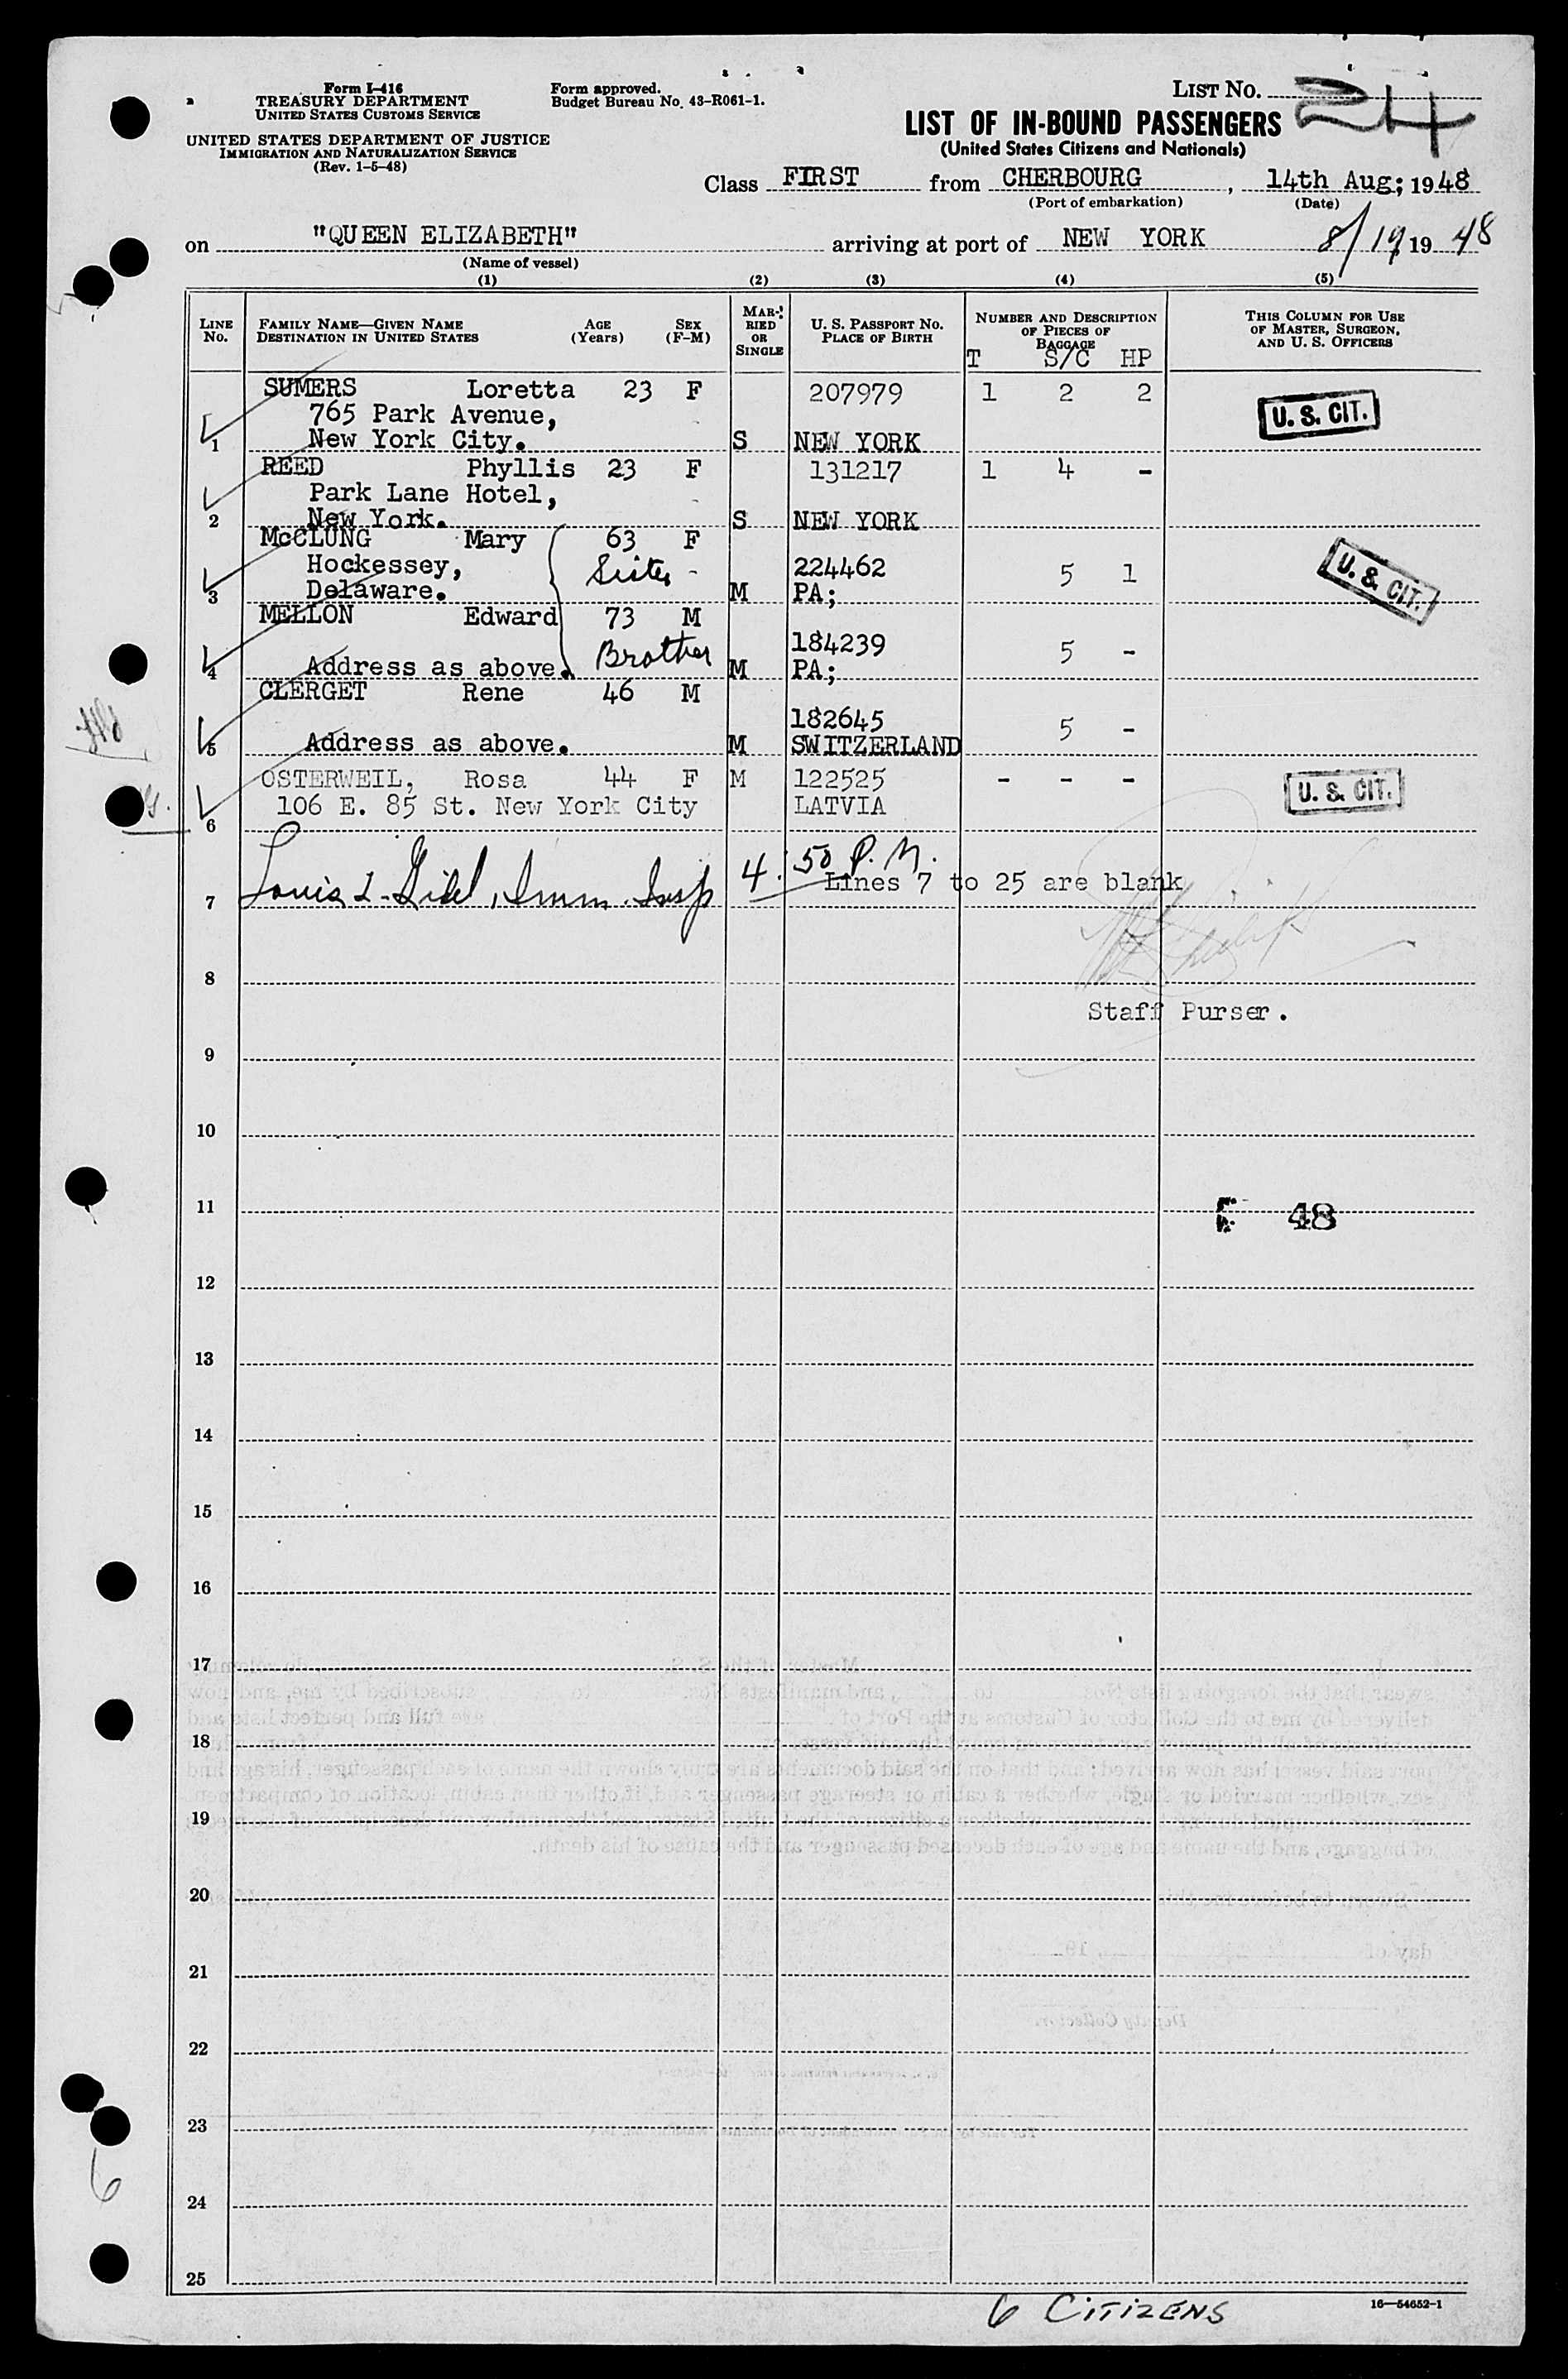 Form I-416
TREASURY DEPARTMENT
UNITED STATES CUSTOMS SERVICE
UNITED STATES DEPARTMENT OF JUSTICE
IMMIGRATION AND NATURALIZATION SERVICE
(Rev. 1-5-48)
Form approved.
Budget Bureau No. 43-R061-1.
LIST NO. 24
LIST OF IN-BOUND PASSENGERS
(United States Citizens and Nationals)
Class FIRST from CHERBOURG, 14th Aug; 1948
(Port of embarkation) (Date)
on "QUEEN ELIZABETH" arriving at port of NEW YORK 8/19 19 48
(Name of vessel)
(1) (2) (3) (4) (5)
LINE NO.
FAMILY NAME—GIVEN NAME
DESTINATION IN UNITED STATES
AGE (Years)
SEX (F-M)
MARRIED OR SINGLE
U. S. PASSPORT NO.
PLACE OF BIRTH
NUMBER AND DESCRIPTION OF PIECES OF BAGGAGE
T S/C HP
THIS COLUMN FOR USE OF MASTER, SURGEON, AND U. S. OFFICERS
SUMERS Loretta 23 F 207979 1 2 2
765 Park Avenue, U. S. CIT.
1 New York City. S NEW YORK
REED Phyllis 23 F 131217 1 4 -
Park Lane Hotel,
2 New York. S NEW YORK
McCLUNG Mary 63 F
Hockessey, Sister - 224462 5 1 U. S. CIT.
3 Delaware. M PA;
MELLON Edward 73 M
Brother 184239 5 -
4 Address as above. M PA;
CLERGET Rene 46 M
182645 5 -
5 Address as above. M SWITZERLAND
OSTERWEIL, Rosa 44 F M 122525 - - -
106 E. 85 St. New York City LATVIA U. S. CIT.
6
4:50 P.M.
7 Louis L. Imm. Insp Lines 7 to 25 are blank
8
Staff Purser.
9
10
11 48
12
13
14
15
16
17
18
19
20
21
22
23
6
24
25
6 CITIZENS
16—54652-1